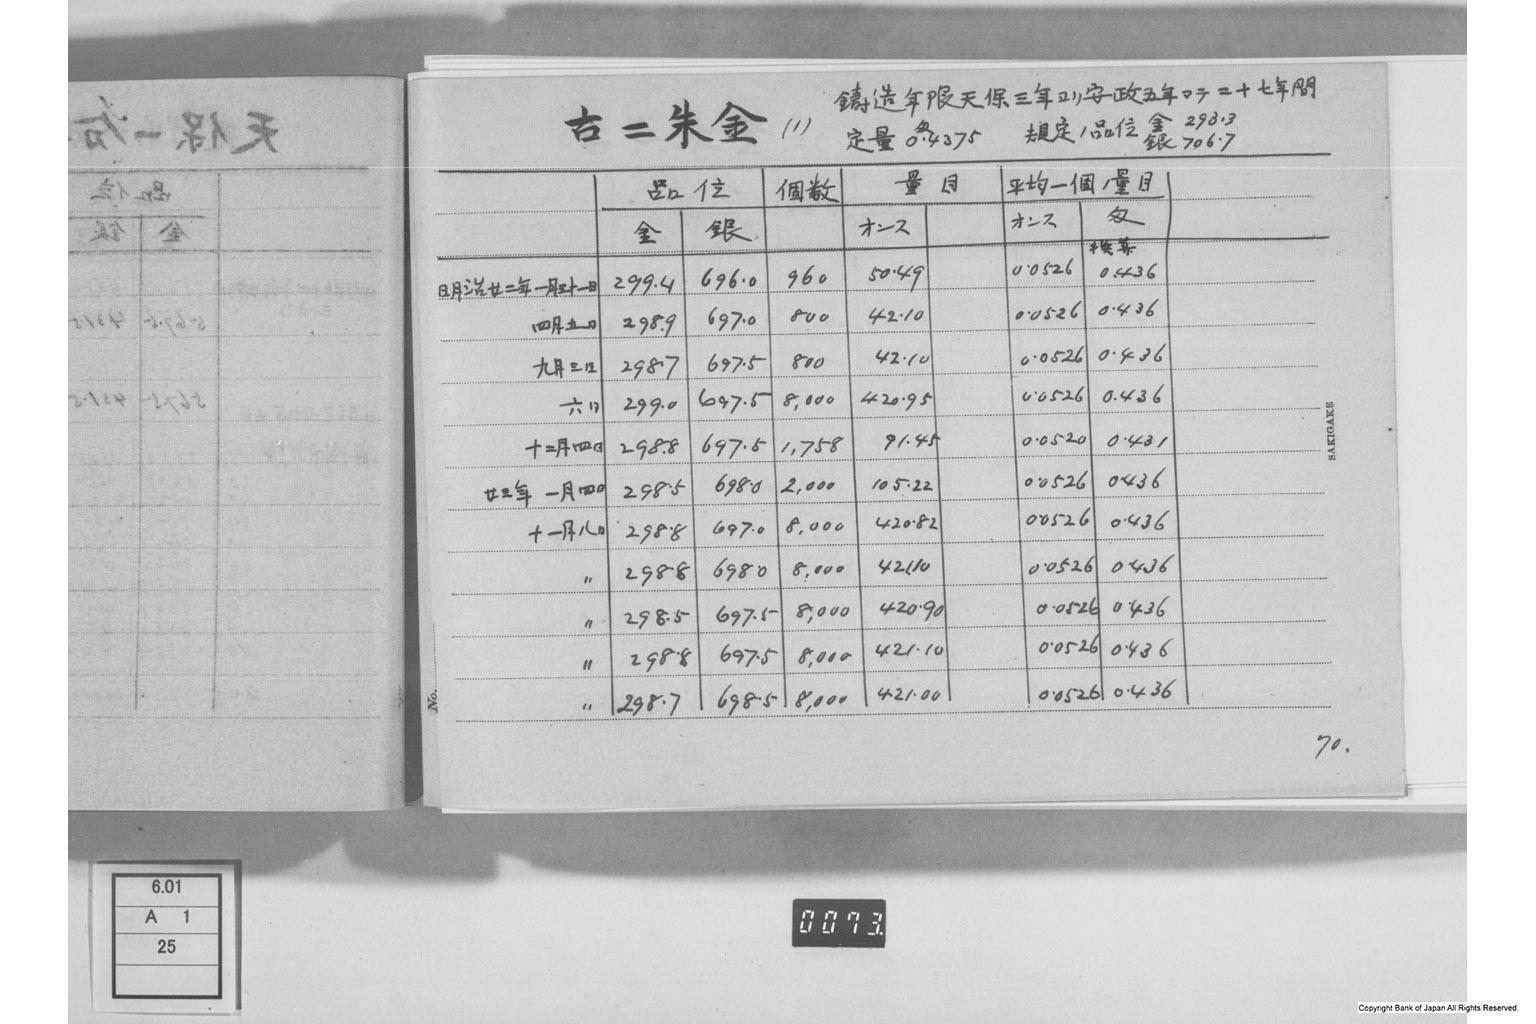 古二朱金 (1)
鋳造年限天保三年ヨリ安政五年マテ二十七年間
定量 匁0.4375 規定ノ品位 金 293.3
銀 706.7
品位 個数 量目 平均一個ノ量目
金 銀 オンス オンス 匁
換算
明治廿二年一月三十一日 299.4 696.0 960 50.49 0.0526 0.436
四月五日 298.9 697.0 800 42.10 0.0526 0.436
九月三日 298.7 697.5 800 42.10 0.0526 0.436
六日 299.0 697.5 8,000 420.95 0.0526 0.436
十二月四日 298.8 697.5 1,758 91.45 0.0520 0.431
廿三年 一月四日 298.5 698.0 2,000 105.22 0.0526 0.436
十一月八日 298.8 697.0 8,000 420.82 0.0526 0.436
〃 298.8 698.0 8,000 421.10 0.0526 0.436
〃 298.5 697.5 8,000 420.90 0.0526 0.436
〃 298.8 697.5 8,000 421.10 0.0526 0.436
〃 298.7 698.5 8,000 421.00 0.0526 0.436
No.
SAKIGAKE
70.
6.01
A 1
25
0073
Copyright Bank of Japan All Rights Reserved.